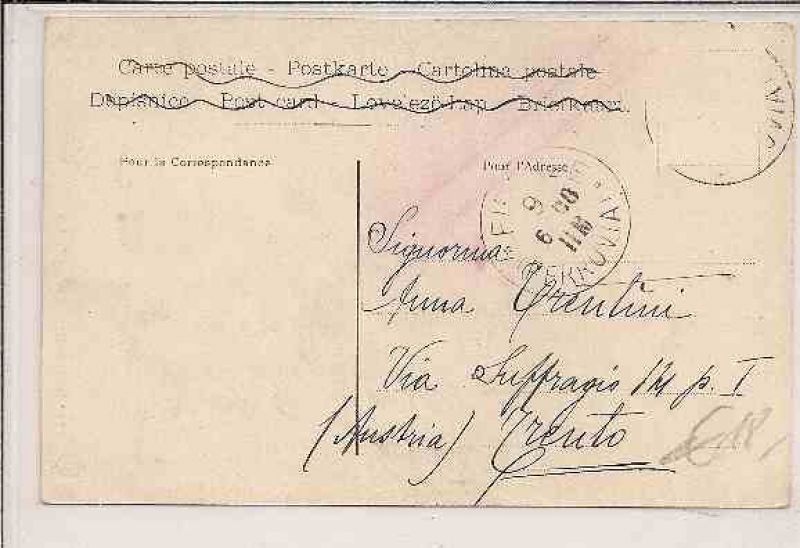 Carte postale - Postkarte - Cartolina postale
Dopisnice - Post card - Levelező-Lap - Briefkaart.
Pour la Correspondance
Pour l'Adresse
9 6 08
11 M
FERROVIA
Signorina
Anna Trentini
Via Suffragio p. I
(Austria) Trento